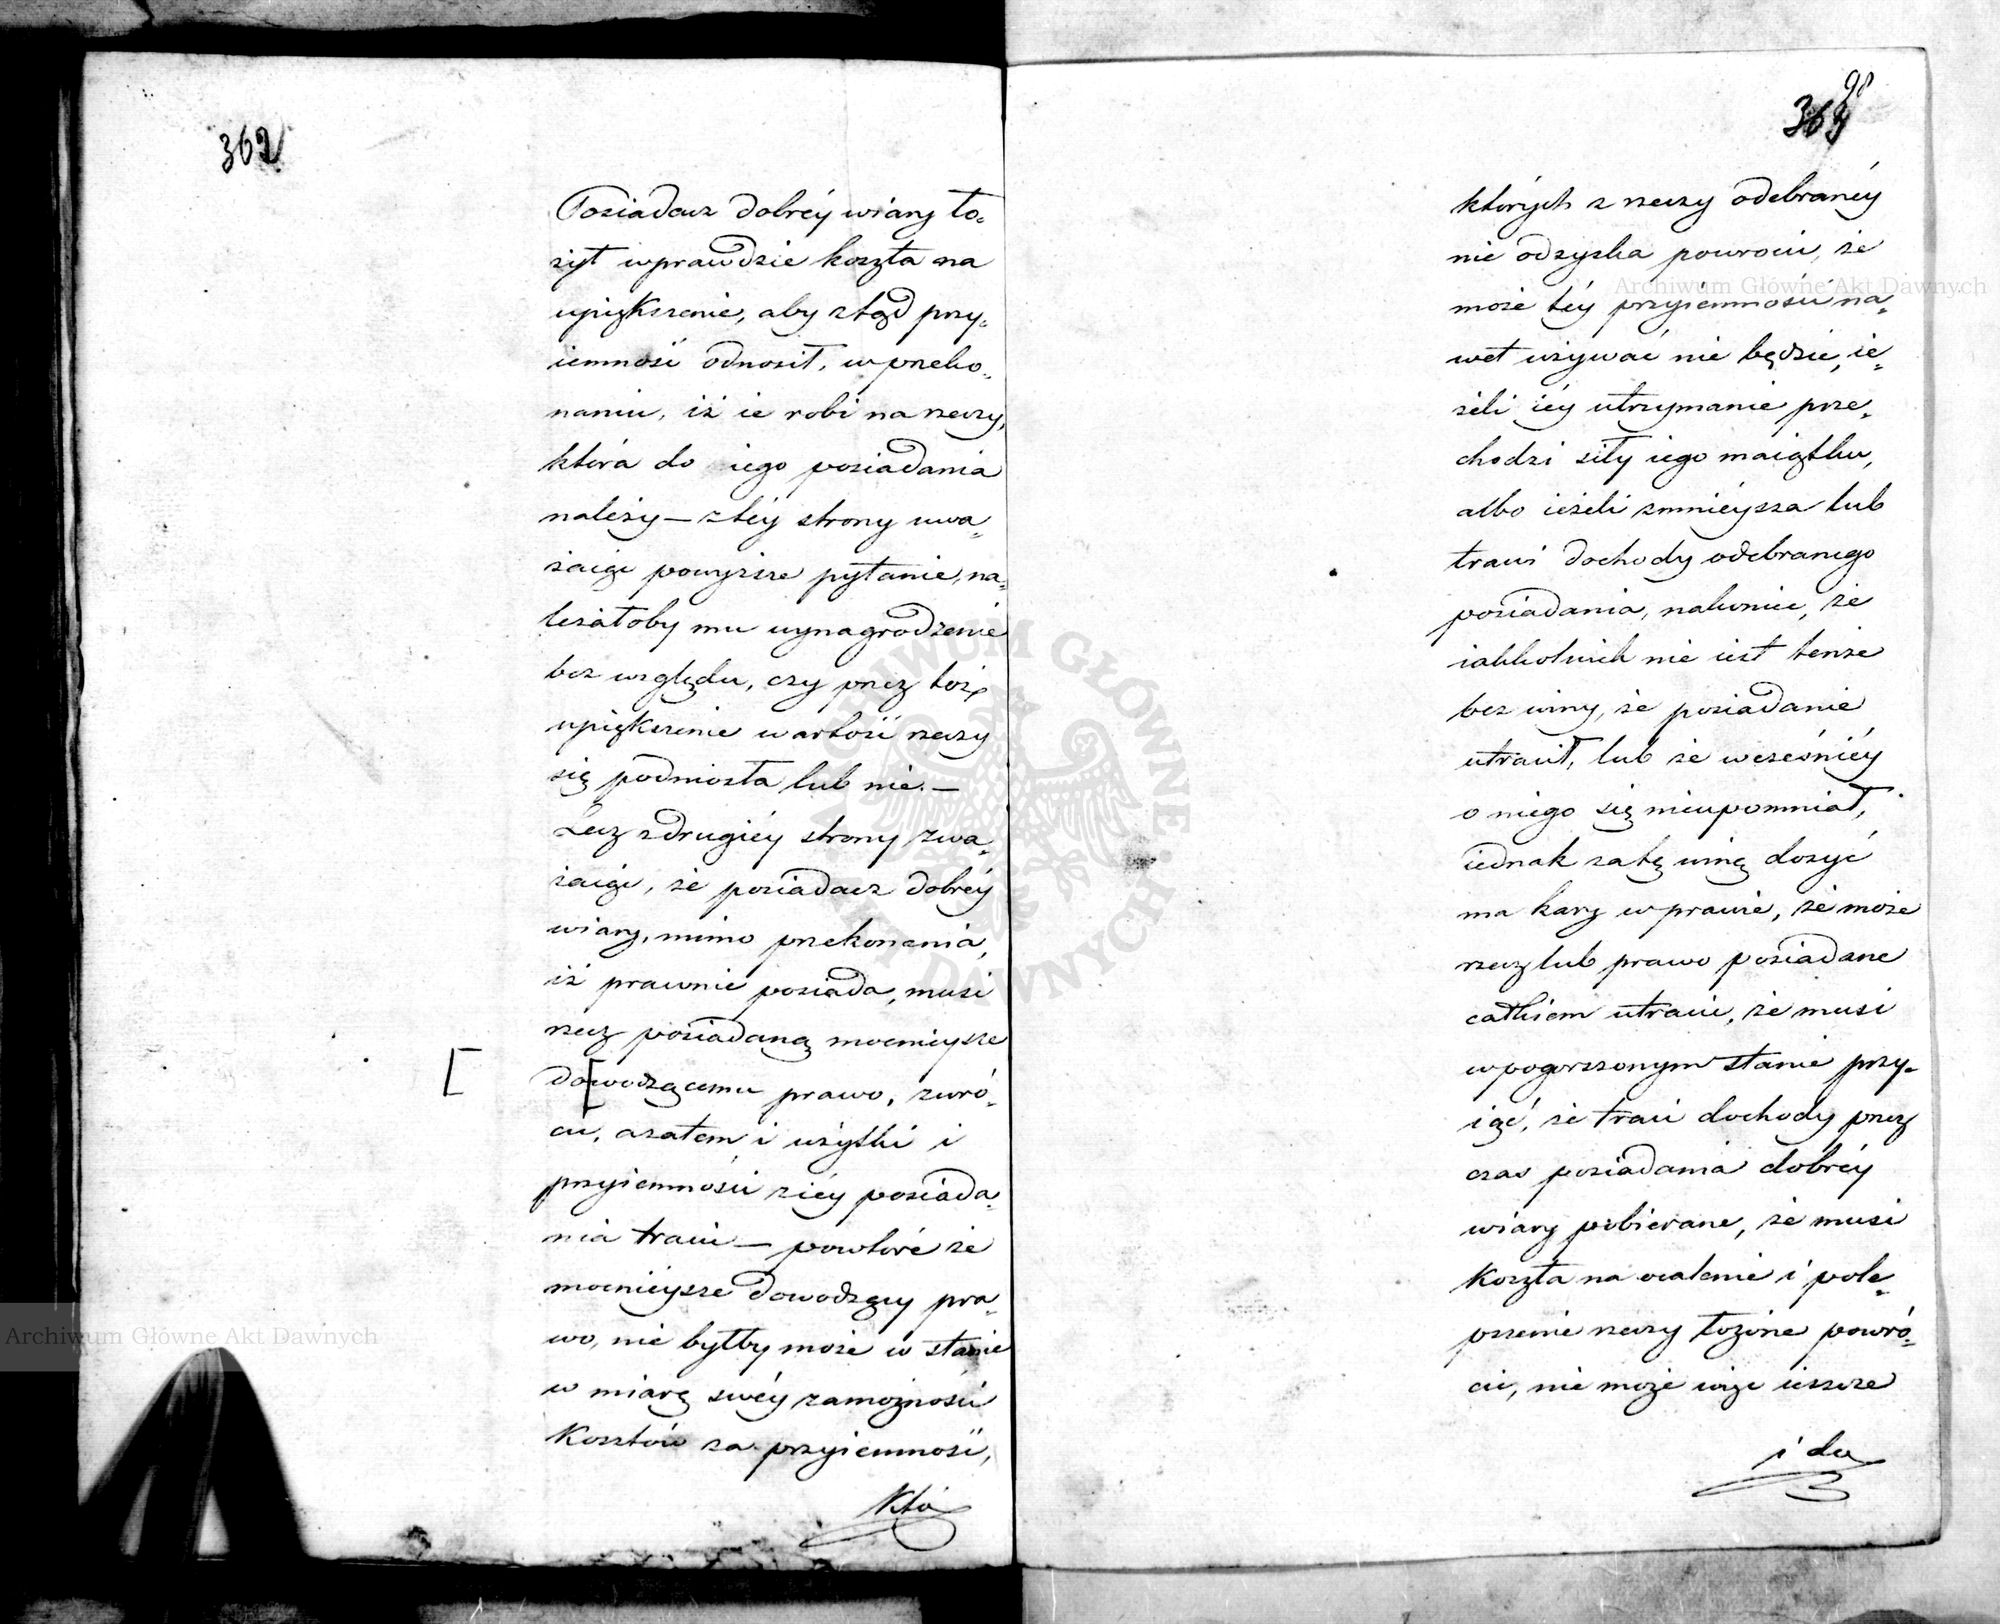 362
Posiadacz dobréy wiary ło-
żył wprawdzie koszta na
upiększenie, aby ztąd przy-
iemność odnosił, w przeko-
naniu, iż ie robi na rzeczy,
która do iego posiadania
należy — z téy strony uwa-
żaiąc powyższe pytanie, na-
leżałoby mu wynagrodzenie
bez względu, czy przez toż
upiększenie wartość rzeczy
się podniosła lub nie. —
Lecz z drugiéy strony zwa-
żaiąc, że posiadacz dobréy
wiary, mimo przekonania,
iż prawnie posiada, musi
rzecz posiadaną mocnieysze
dowodzącemu prawo, zwró-
cić, a zatem i użytki i
przyiemności z iéy posiada-
nia traci — powtóre że
mocniéysze dowodzący pra-
wo, nie byłby może w stanie
w miarę swéy zamożności
kosztów za przyiemność,
któ
98
363
których z rzeczy odebranéy
nie odzyska powrócić, że
może téy przyiemności na-
wet używać nie będzie, ie-
żeli iéy utrzymanie prze-
chodzi siły iego maiątku,
albo ieżeli zmniéysza lub
traci dochody odebranego
posiadania, nakoniec, że
iakkolwiek nie iest tenże
bez winy, że posiadanie
utracił, lub że wcześniéy
o niego się nieupomniał,
iednak za tę winę dosyć
ma kary w prawie, że może
rzecz lub prawo posiadane
całkiem utracić, że musi
w pogorszonym stanie przy-
iąć, że traci dochody przez
czas posiadania dobréy
wiary pobierane, że musi
koszta na ocalenie i pole-
pszenie rzeczy łożone powró-
cić, nie może więc ieszcze
i do
Archiwum Główne Akt Dawnych
Archiwum Główne Akt Dawnych
ARCHIWUM GŁÓWNE AKT DAWNYCH